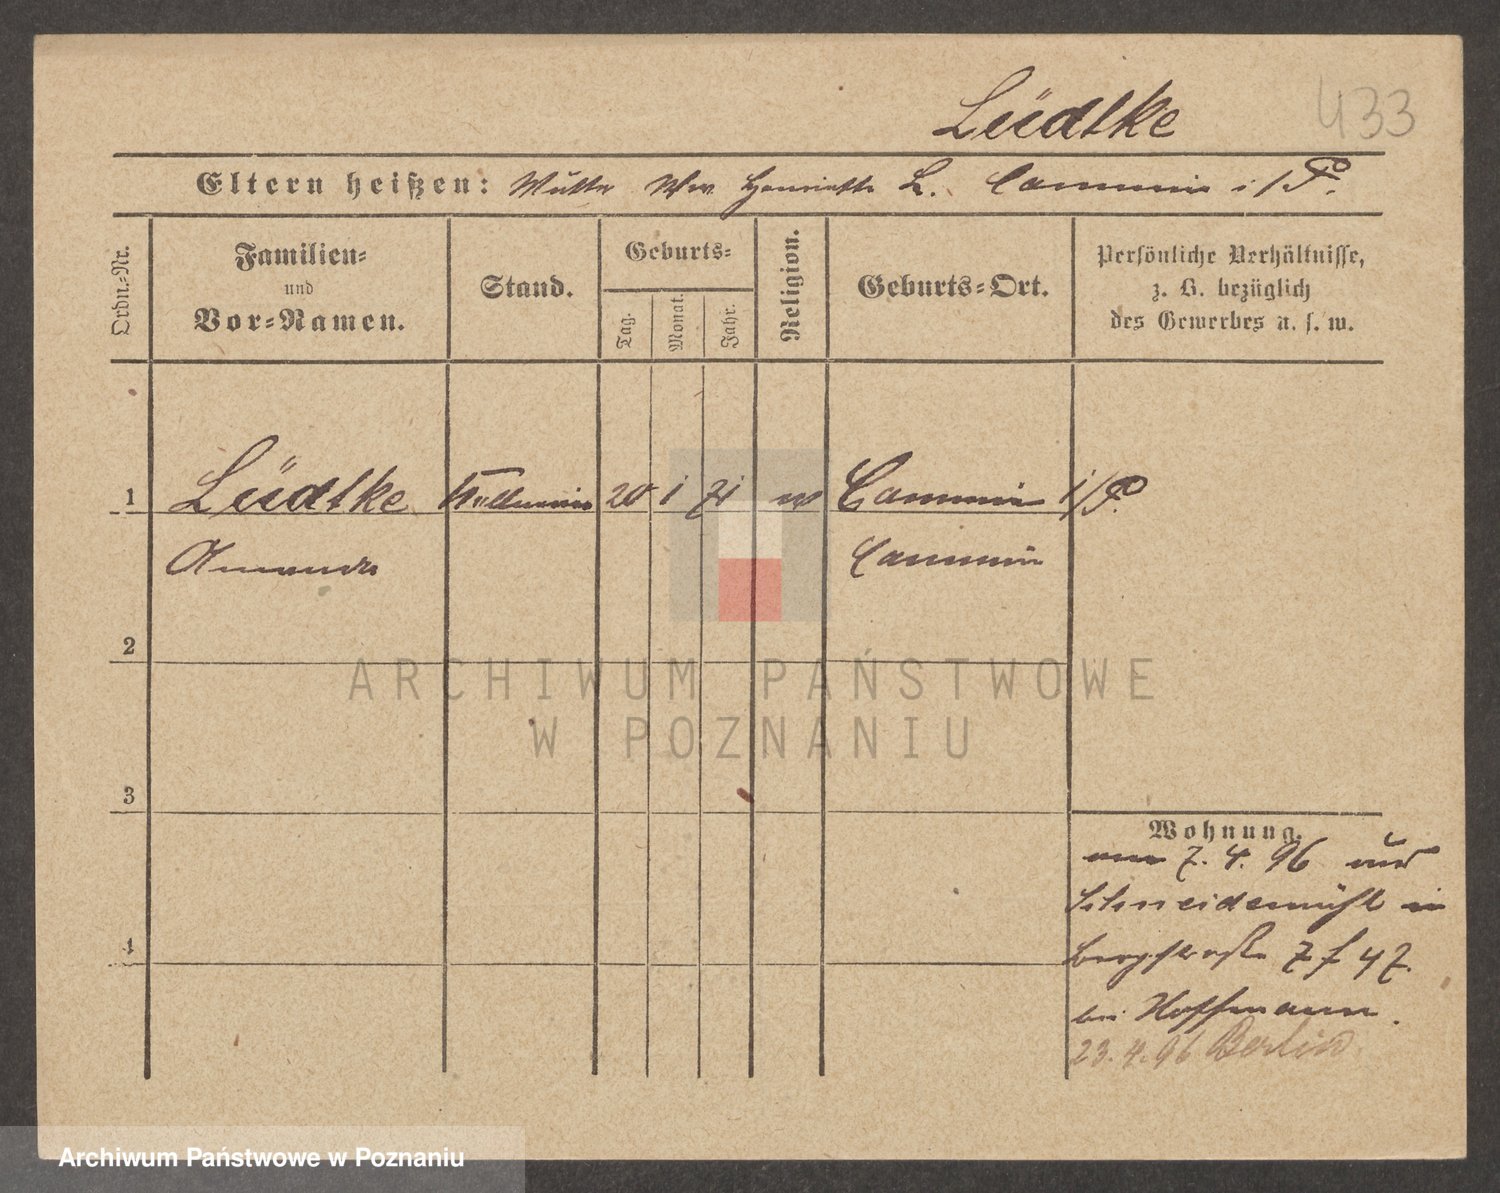 Lüdtke 433
Eltern heißen: Mutter Ww. Henriette L. Cammin i/P.
Ordn.-Nr.
Familien-
und
Vor-Namen.
Stand.
Geburts-
Tag.
Monat.
Jahr.
Religion.
Geburts-Ort.
Persönliche Verhältnisse,
z. B. bezüglich
des Gewerbes u. s. w.
1 Lüdtke Kellnerin 20 1 71 ev Cammin i/P.
Amanda Cammin
2
3
4
Wohnung.
am 7. 4. 96 aus
Schneidemühl in
Bergstraße 7 f 47.
bei Hoffmann.
23.4.96 Berlin
ARCHIWUM PAŃSTWOWE
W POZNANIU
Archiwum Państwowe w Poznaniu